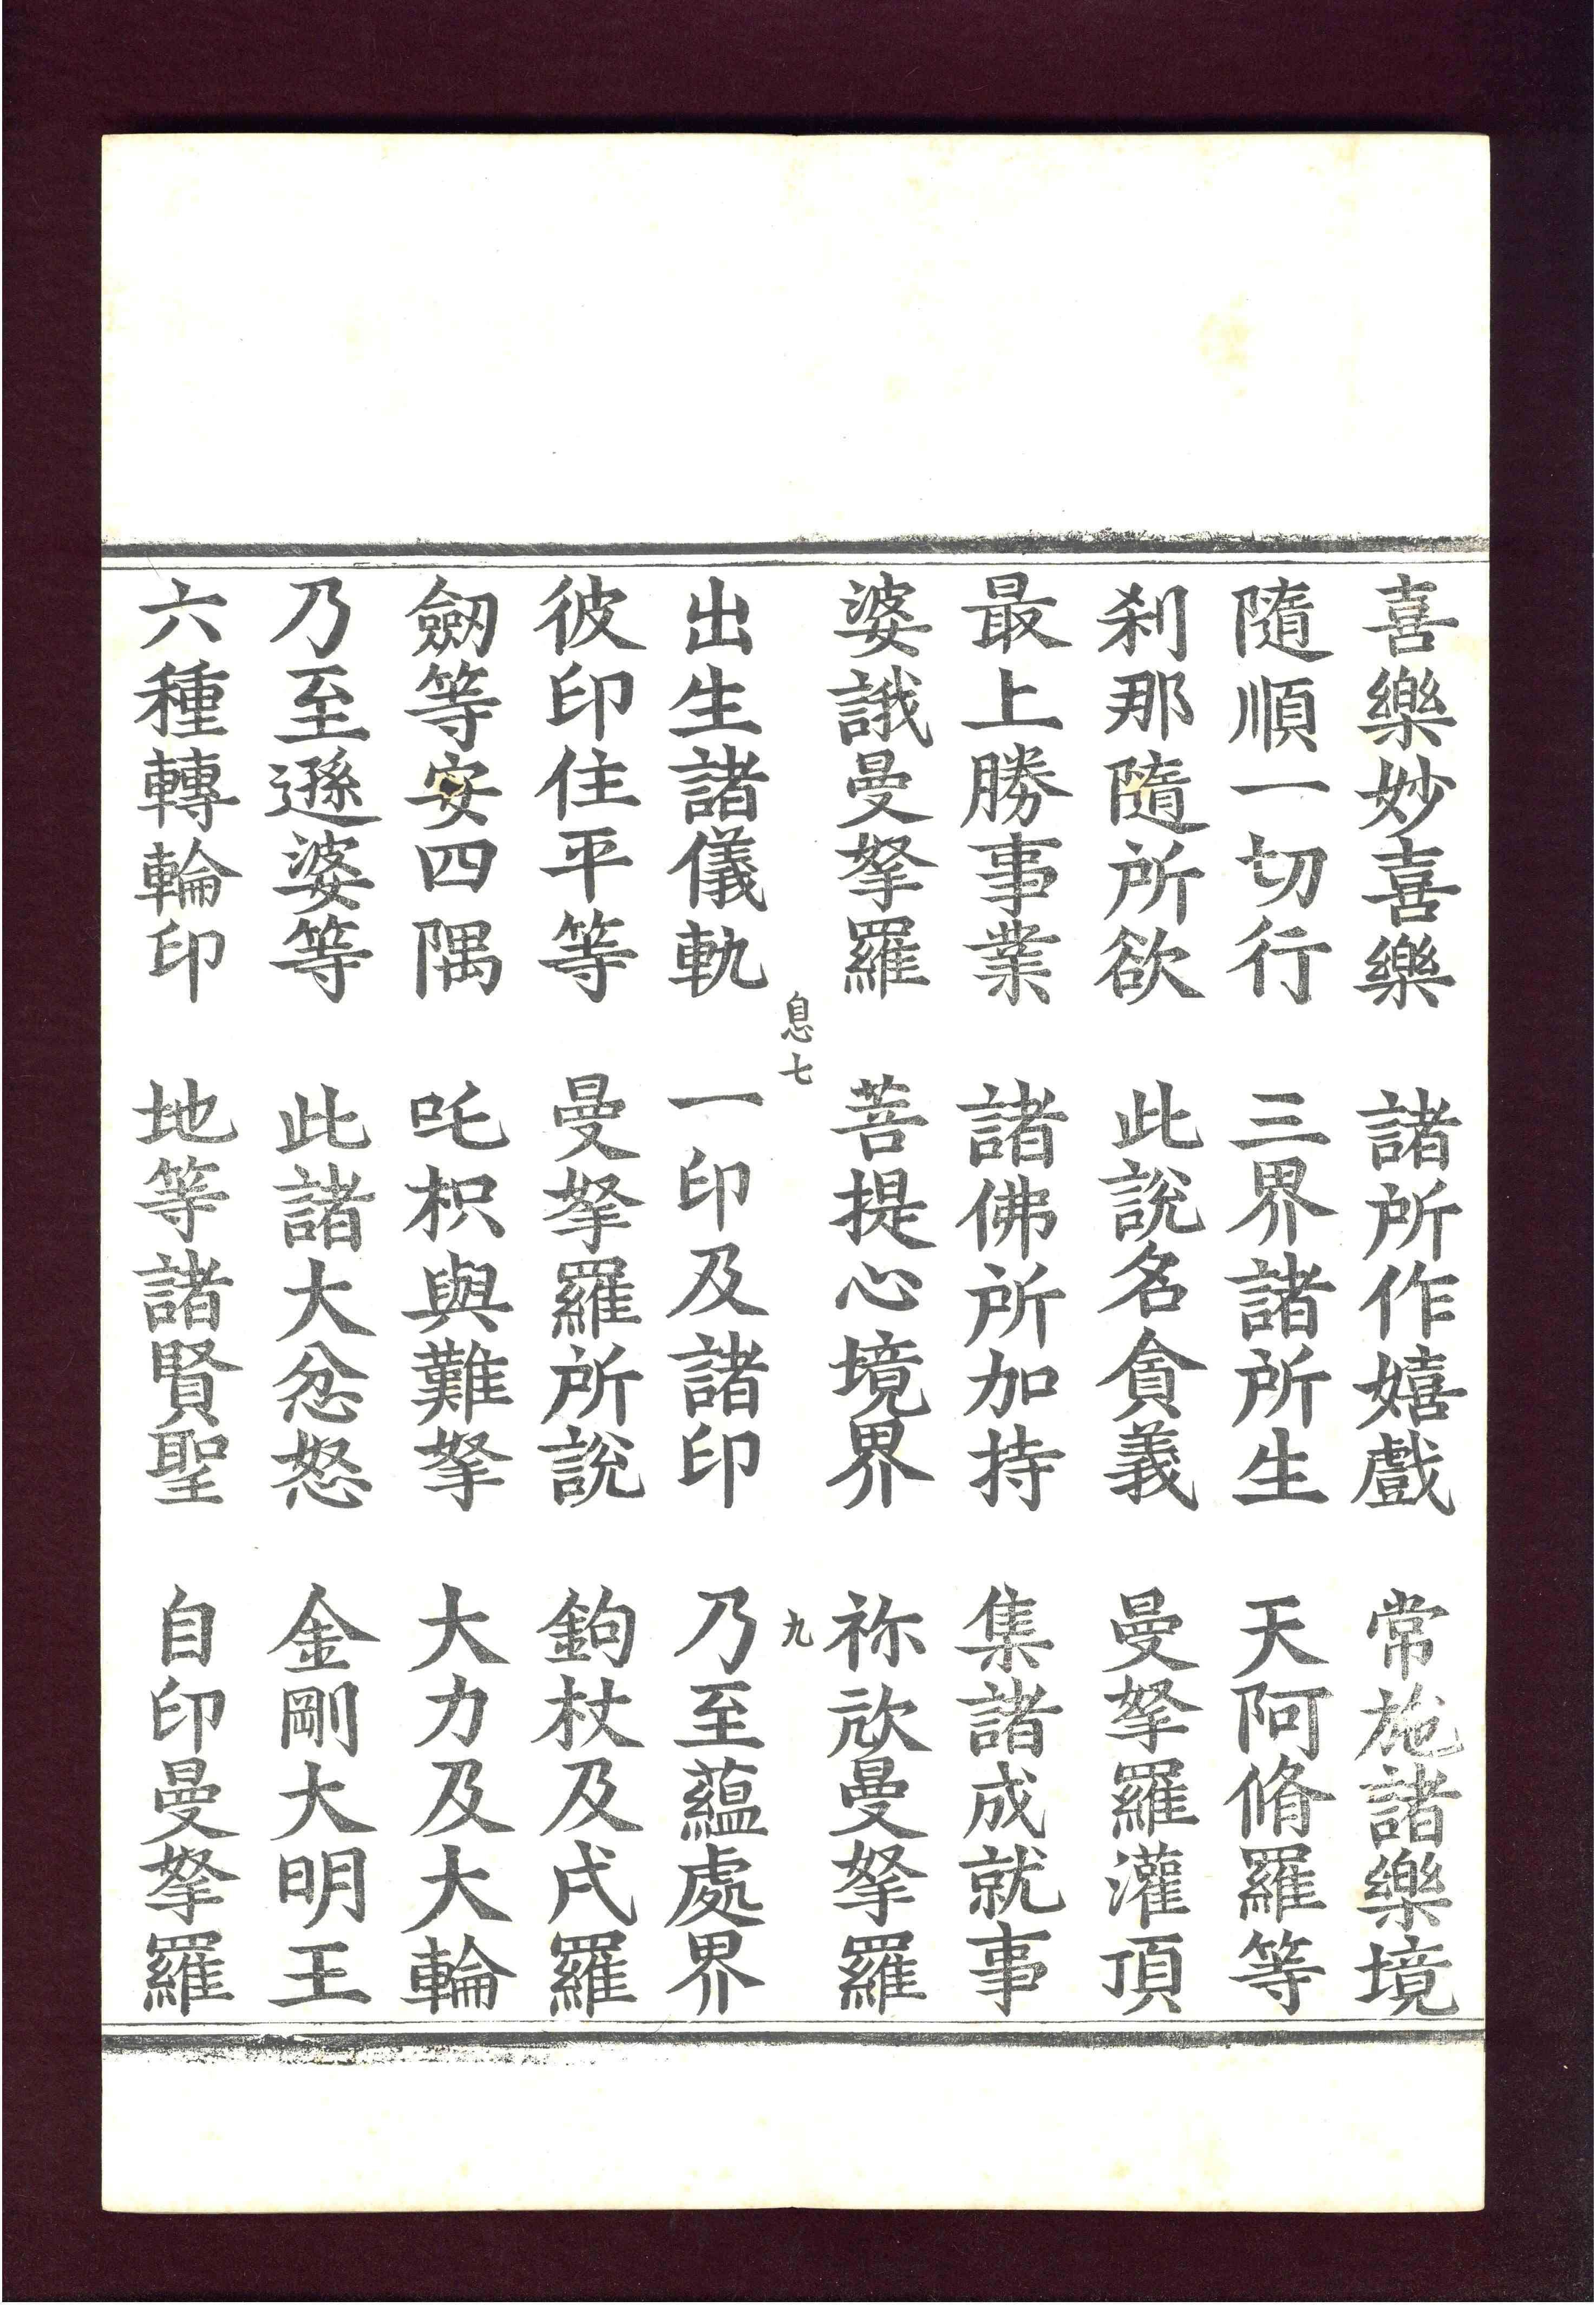 喜樂妙喜樂　諸所作嬉戲　常施諸樂境
隨順一切行　三界諸所生　天阿脩羅等
刹那隨所欲　此說名貪義　曼拏羅灌頂
最上勝事業　諸佛所加持　集諸成就事
婆誐曼拏羅　菩提心境界　祢㰠曼拏羅
息七　九
出生諸儀軌　一印及諸印　乃至蘊處界
彼印住平等　曼拏羅所說　鉤杖及戌羅
劒等安四隅　吒枳與難拏　大力及大輪
乃至遜婆等　此諸大忿怒　金剛大明王
六種轉輪印　地等諸賢聖　自印曼拏羅